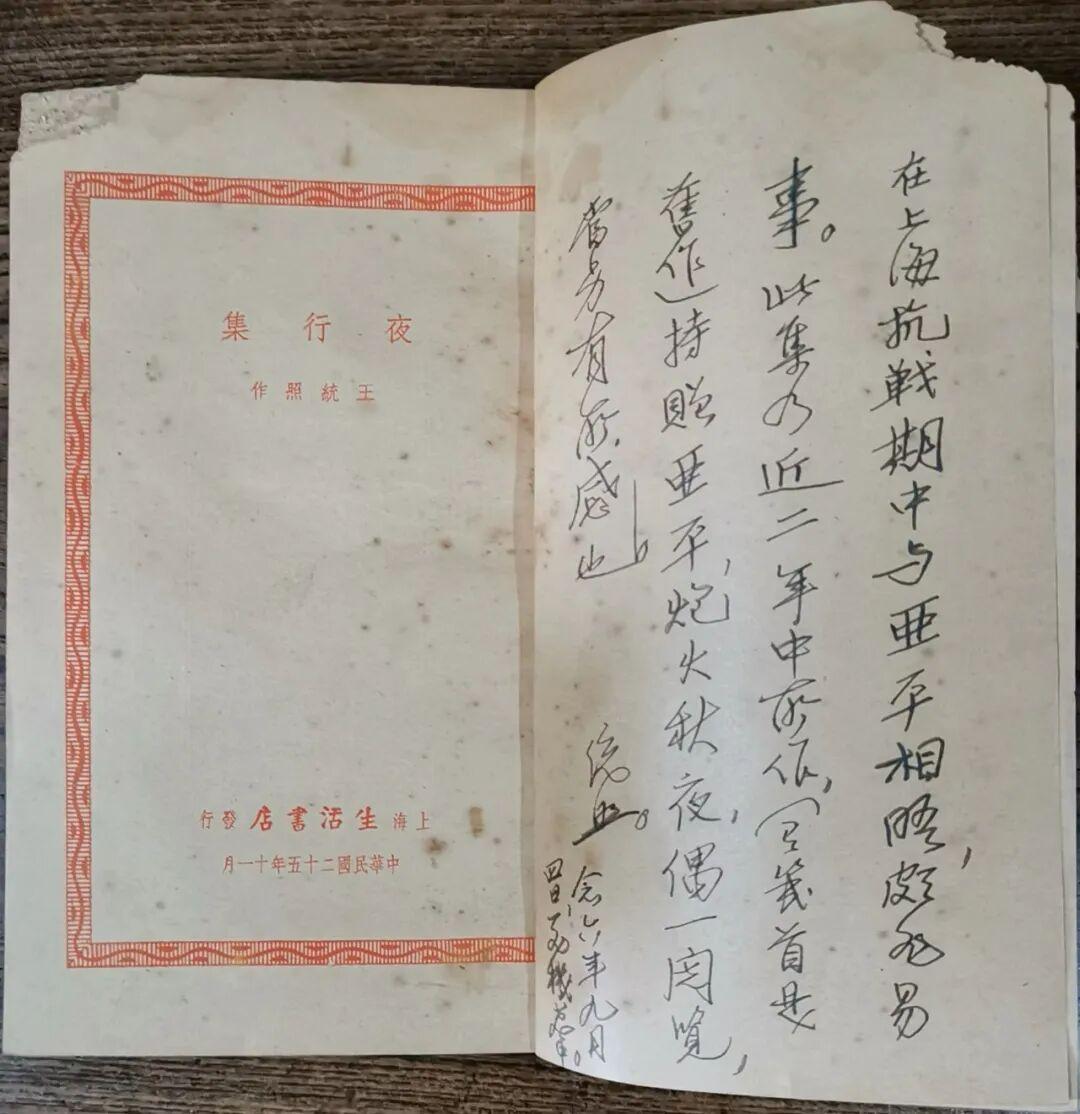 在上海抗戦期中与亜平相晤,頗非易
事。此集乃近二年中所作,(只幾首是
舊作)持贈亜平,炮火秋夜,偶一閱覽,
當亦有所感也。
統照。
念六年九月
四日,
夜行集
王統照作
上海生活書店發行
中華民國二十五年十一月